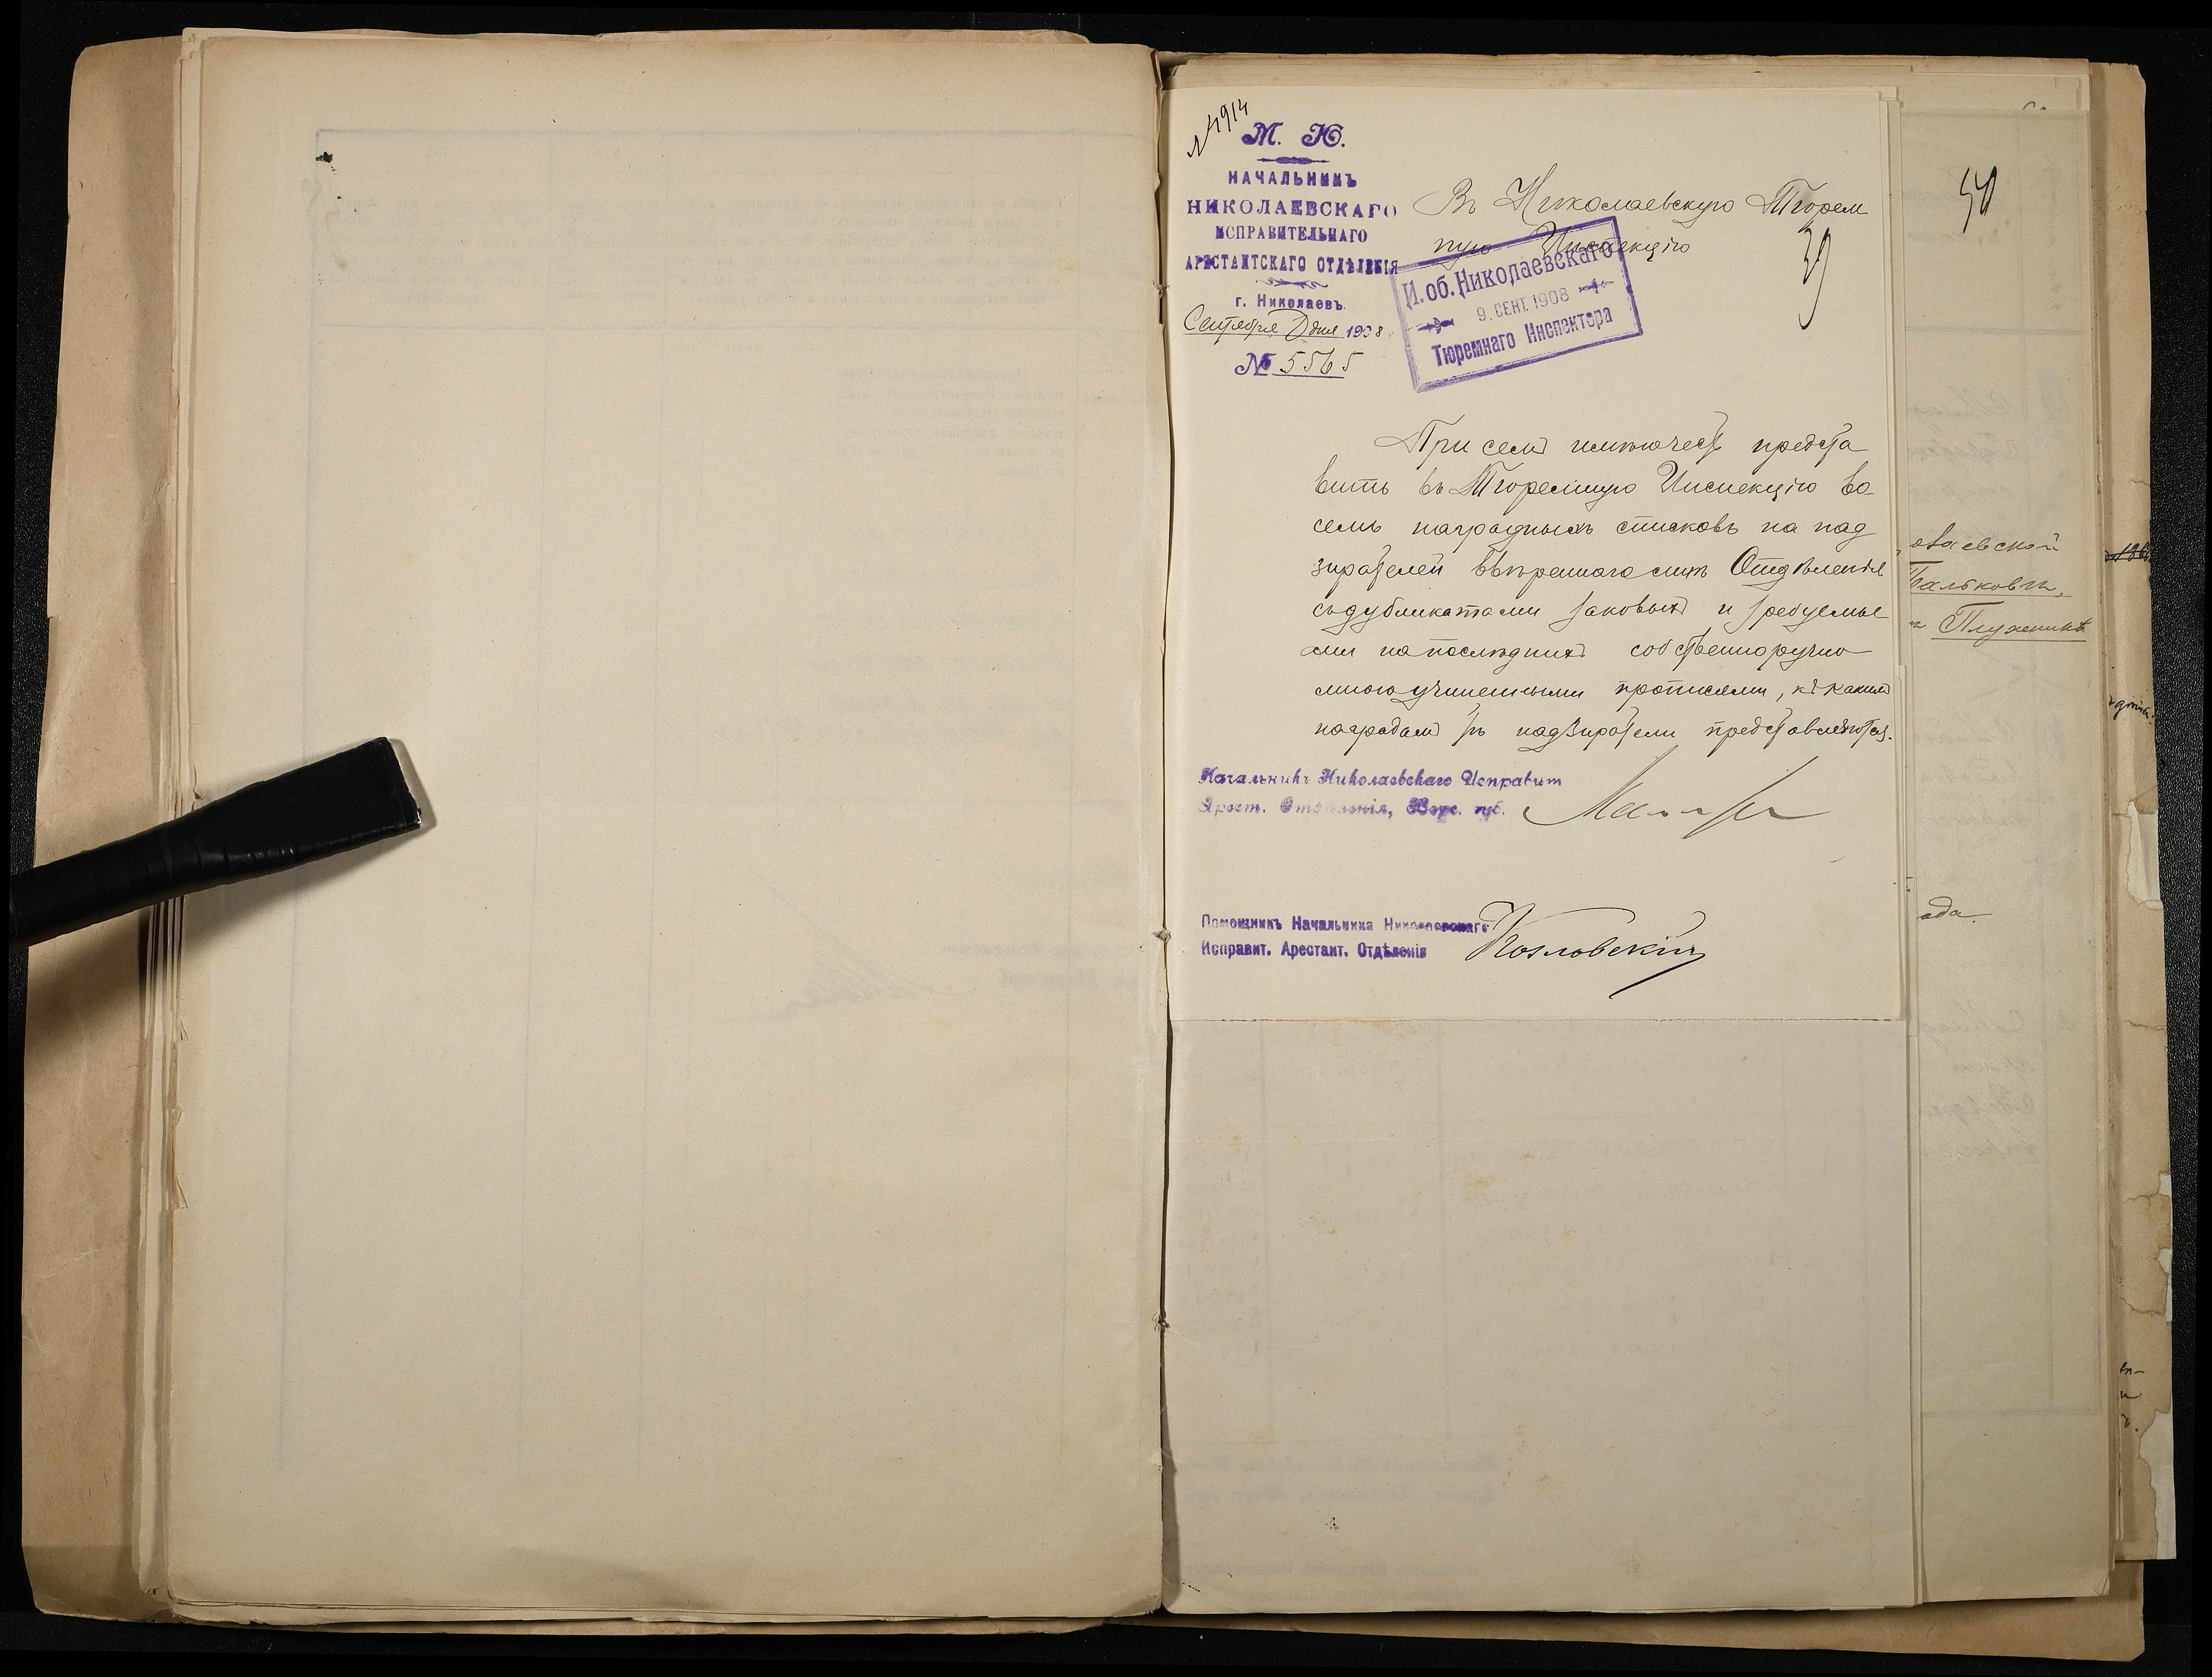 № 4914
М. Ю.
НАЧАЛЬНИКЪ
НИКОЛАЕВСКАГО
ИСПРАВИТЕЛЬНАГО
АРЕСТАНТСКАГО ОТДѢЛЕНІЯ
г. Николаевъ.
Сентября дня 1908
№ 5565
Въ Николаевскую Тюрем
ную Инспекцію
39
И. об. Николаевскаго
9. СЕНТ. 1908
Тюремнаго Инспектора
При семъ имѣю честь предста
вить въ Тюремную Инспекцію во
семь наградныхъ списковъ на над
зирателей ввѣреннаго мнѣ Отдѣленія
съ дубликатами таковыхъ и требуемые
ми на послѣднихъ собственноручно
мною учиненными прописями, къ какимъ
наградамъ тѣ надзиратели представляются.
Начальникъ Николаевскаго Исправит
Арест. Отдѣленія, Херс. губ.
Помощникъ Начальника Николаевскаго
Исправит. Арестант. Отдѣленія
Козловскій
50
оваевской
Пальковъ,
и Плуженикъ
ада.